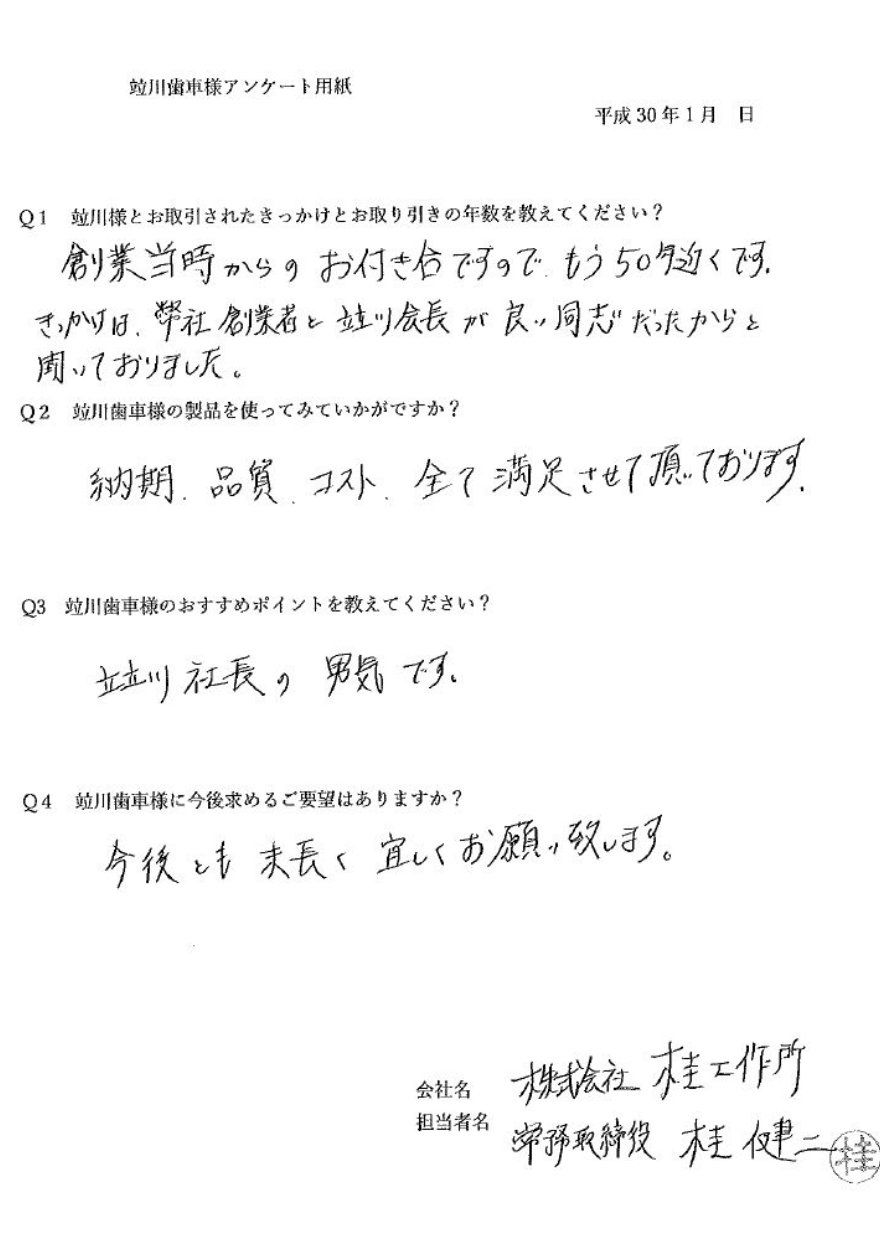 竝川歯車様アンケート用紙
平成30年1月 日
Q1 竝川様とお取引されたきっかけとお取り引きの年数を教えてください？
創業当時からの お付き合ですので、もう50年近くです。
きっかけは、弊社創業者と竝川会長が良い同志だったからと
聞いておりました。
Q2 竝川歯車様の製品を使ってみていかがですか？
納期、品質、コスト、全て満足させて頂いております。
Q3 竝川歯車様のおすすめポイントを教えてください？
竝川社長の男気です。
Q4 竝川歯車様に今後求めるご要望はありますか？
今後とも末長く宜しくお願い致します。
会社名 株式会社 桂工作所
担当者名 常務取締役 桂 健二
桂